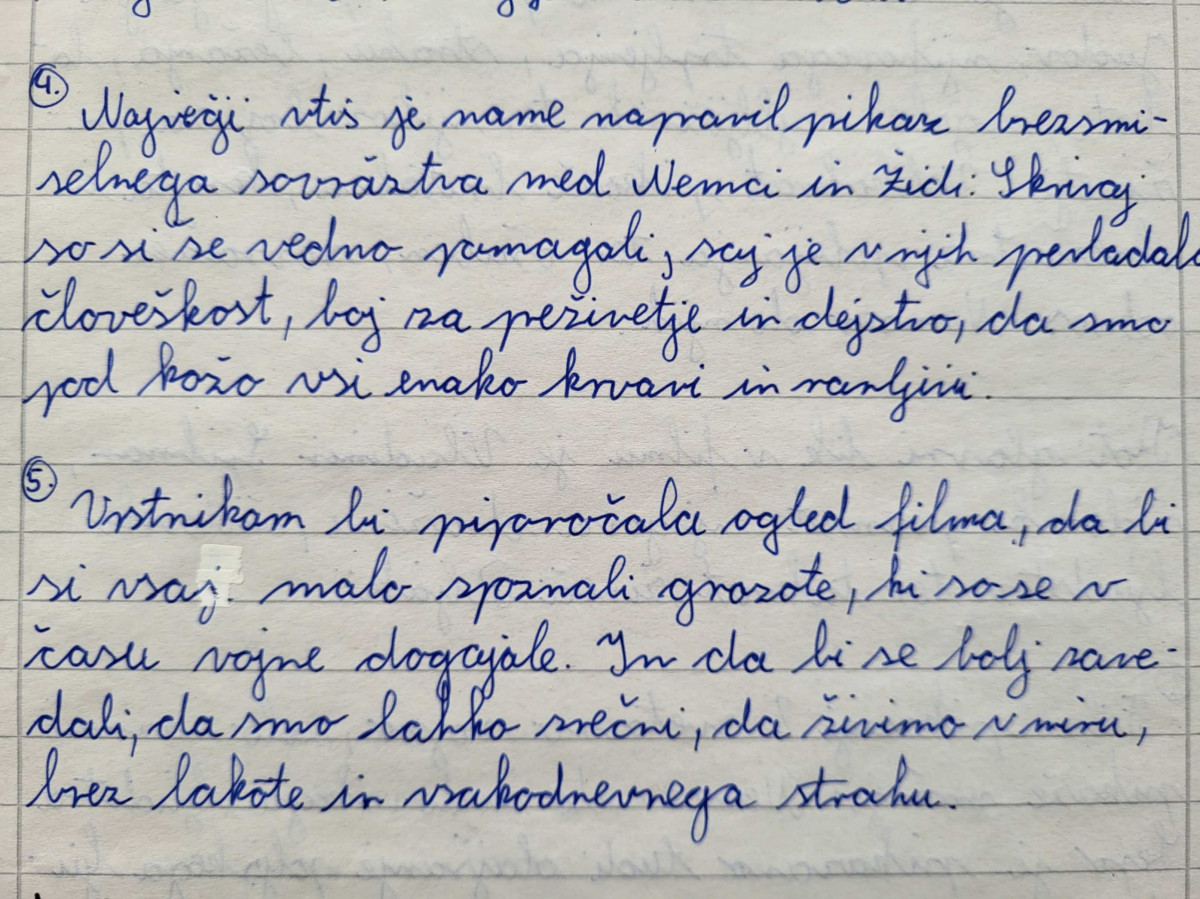 4. Največji vtis je name napravil pikaz brezsmi-
selnega sovraštva med Nemci in Židi. Skrivaj
so si še vedno pomagali, saj je v njih prevladala
človeškost, boj za peživetje in dejstvo, da smo
pod kožo vsi enako krvavi in ranljivi.
5. Vrstnikom bi piporočala ogled filma, da bi
si vsaj malo spoznali grozote, ki so se v
času vojne dogajale. In da bi se bolj zave-
dali, da smo lahko srečni, da živimo v miru,
brez lakote in vsakodnevnega strahu.